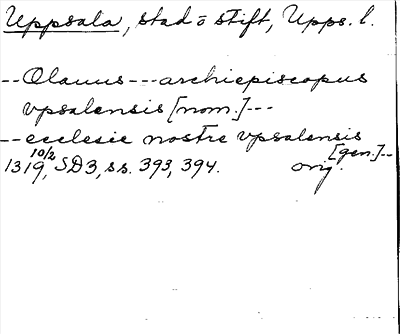 Uppsala, stad o stift, Upps. l.
--Olauus---archiepiscopus
vpsalensis [nom.]---
--ecclesie nostre vpsalensis
[gen.]--
10/2
1319, SD3, ss. 393, 394. orig.